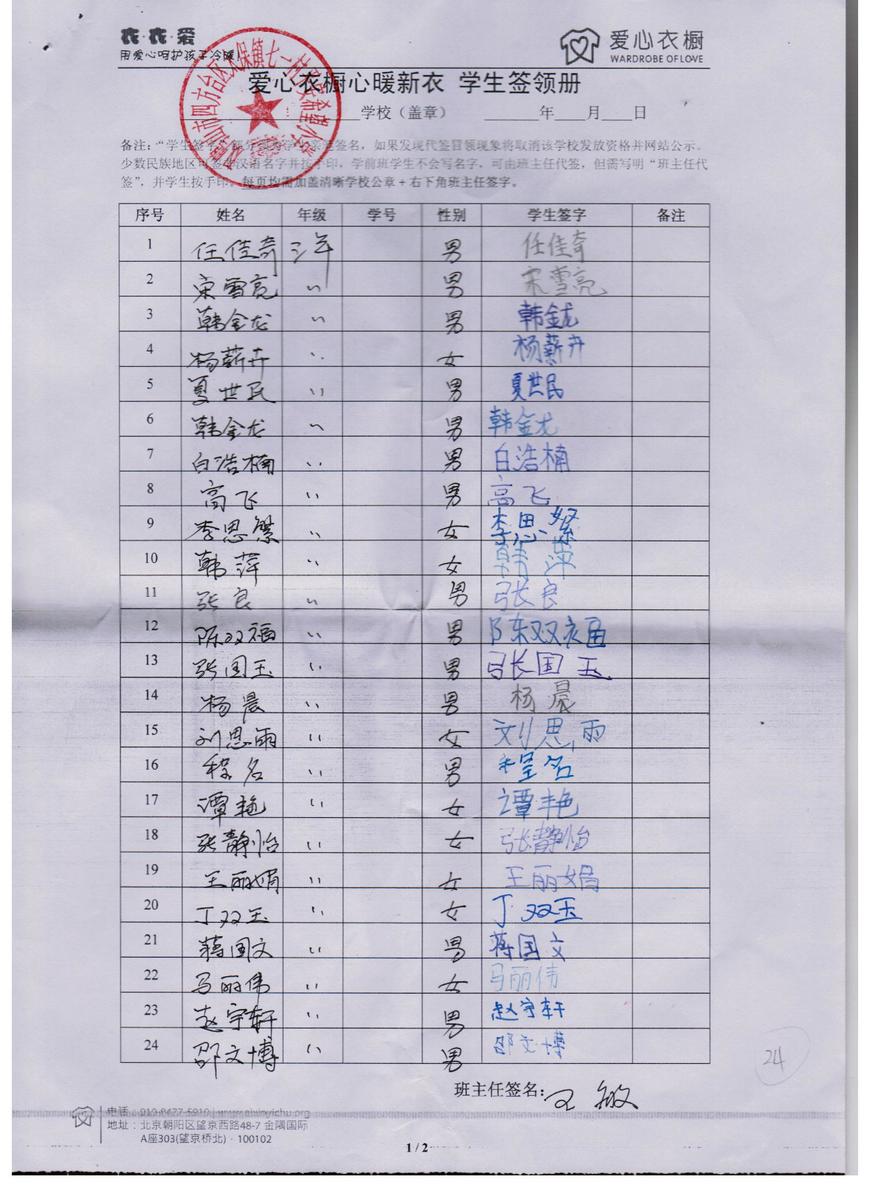 衣·衣·爱
用爱心呵护孩子冷暖!
爱心衣橱
WARDROBE OF LOVE
爱心衣橱心暖新衣 学生签领册
学校（盖章） 年 月 日
备注：“学生签字”部分 签名，如果发现代签冒领现象将取消该学校发放资格并网站公示。
少数民族地区可签 汉语名字并按手印，学前班学生不会写名字，可由班主任代签，但需写明“班主任代
签”，并学生按手印。每页均需加盖清晰学校公章+右下角班主任签字。
序号 姓名 年级 学号 性别 学生签字 备注
1 任佳奇 三年 男 任佳奇
2 宋雪亮 〃 男 宋雪亮
3 韩金龙 〃 男 韩金龙
4 杨薪卉 〃 女 杨薪卉
5 夏世民 〃 男 夏世民
6 韩金龙 〃 男 韩金龙
7 白浩楠 〃 男 白浩楠
8 高飞 〃 男 高飞
9 李思繁 〃 女 李思
10 韩萍 〃 女 韩萍
11 张良 〃 男 张良
12 陈双福 〃 男 陈双福
13 张国玉 〃 男 张国玉
14 杨晨 〃 男 杨晨
15 刘思雨 〃 女 刘思雨
16 程名 〃 男 程名
17 谭艳 〃 女 谭艳
18 张静怡 〃 女 张静怡
19 王丽娟 〃 女 王丽娟
20 丁双玉 〃 女 丁双玉
21 蒋国文 〃 男 蒋国文
22 马丽伟 〃 女 马丽伟
23 赵宇轩 〃 男 赵宇轩
24 邵文博 〃 男 邵文博
24
班主任签名：王敏
电话：010-8477-5919 | www.aixinyichu.org
地址：北京朝阳区望京西路48-7 金隅国际
A座303(望京桥北)·100102
1 / 2